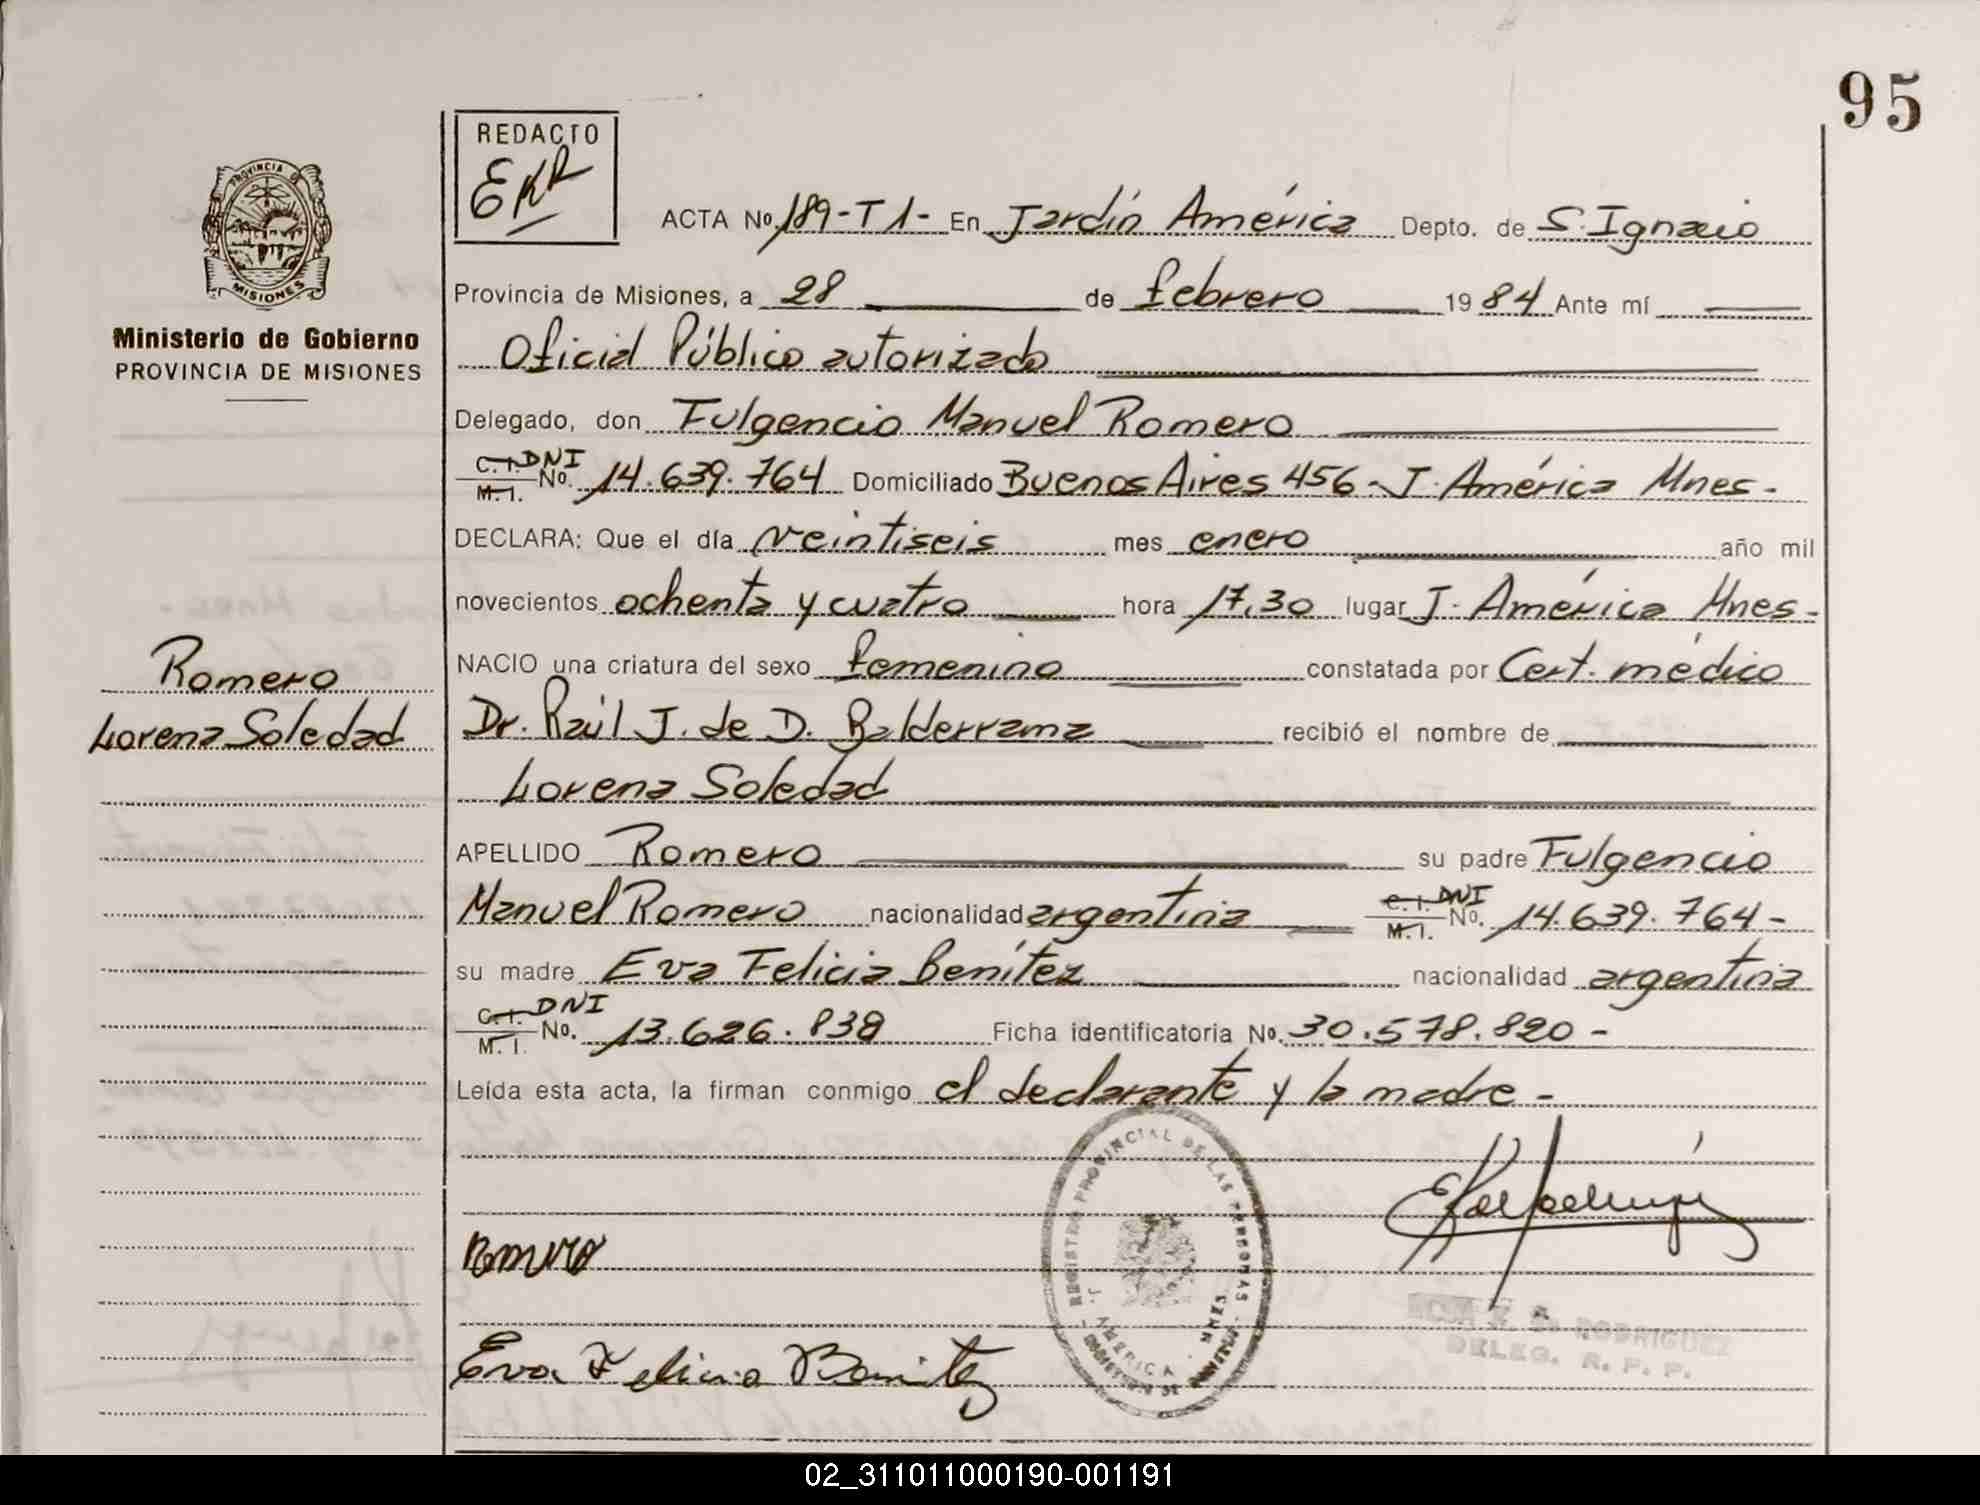 95
REDACTO
EKR
PROVINCIA DE
MISIONES
Ministerio de Gobierno
PROVINCIA DE MISIONES
ACTA No. 189-T1- En Jardín América Depto. de S. Ignacio
Provincia de Misiones, a 28 de febrero 1984 Ante mí
Oficial Público autorizado
Delegado, don Fulgencio Manuel Romero
C.I. DNI
M.I. No. 14.639.764 Domiciliado Buenos Aires 456-J. América Mnes-
DECLARA: Que el día veintiseis mes enero año mil
novecientos ochenta y cuatro hora 17,30 lugar J. América Mnes-
NACIO una criatura del sexo femenino constatada por Cert. médico
Romero
Lorena Soledad
Dr. Raúl J. de D. Balderrama recibió el nombre de
Lorena Soledad
APELLIDO Romero su padre Fulgencio
Manuel Romero nacionalidad argentina C.I. DNI M.I. No. 14.639.764-
su madre Eva Felicia Benítez nacionalidad argentina
C.I. DNI
M.I. No. 13.626.838 Ficha identificatoria No. 30.578.820-
Leída esta acta, la firman conmigo el declarante y la madre-
REGISTRO PROVINCIAL DE LAS PERSONAS
J. AMERICA - MNES
Romero
Eva Felicia Benitez
RODRIGUEZ
DELEG. R. P. P.
02_311011000190-001191